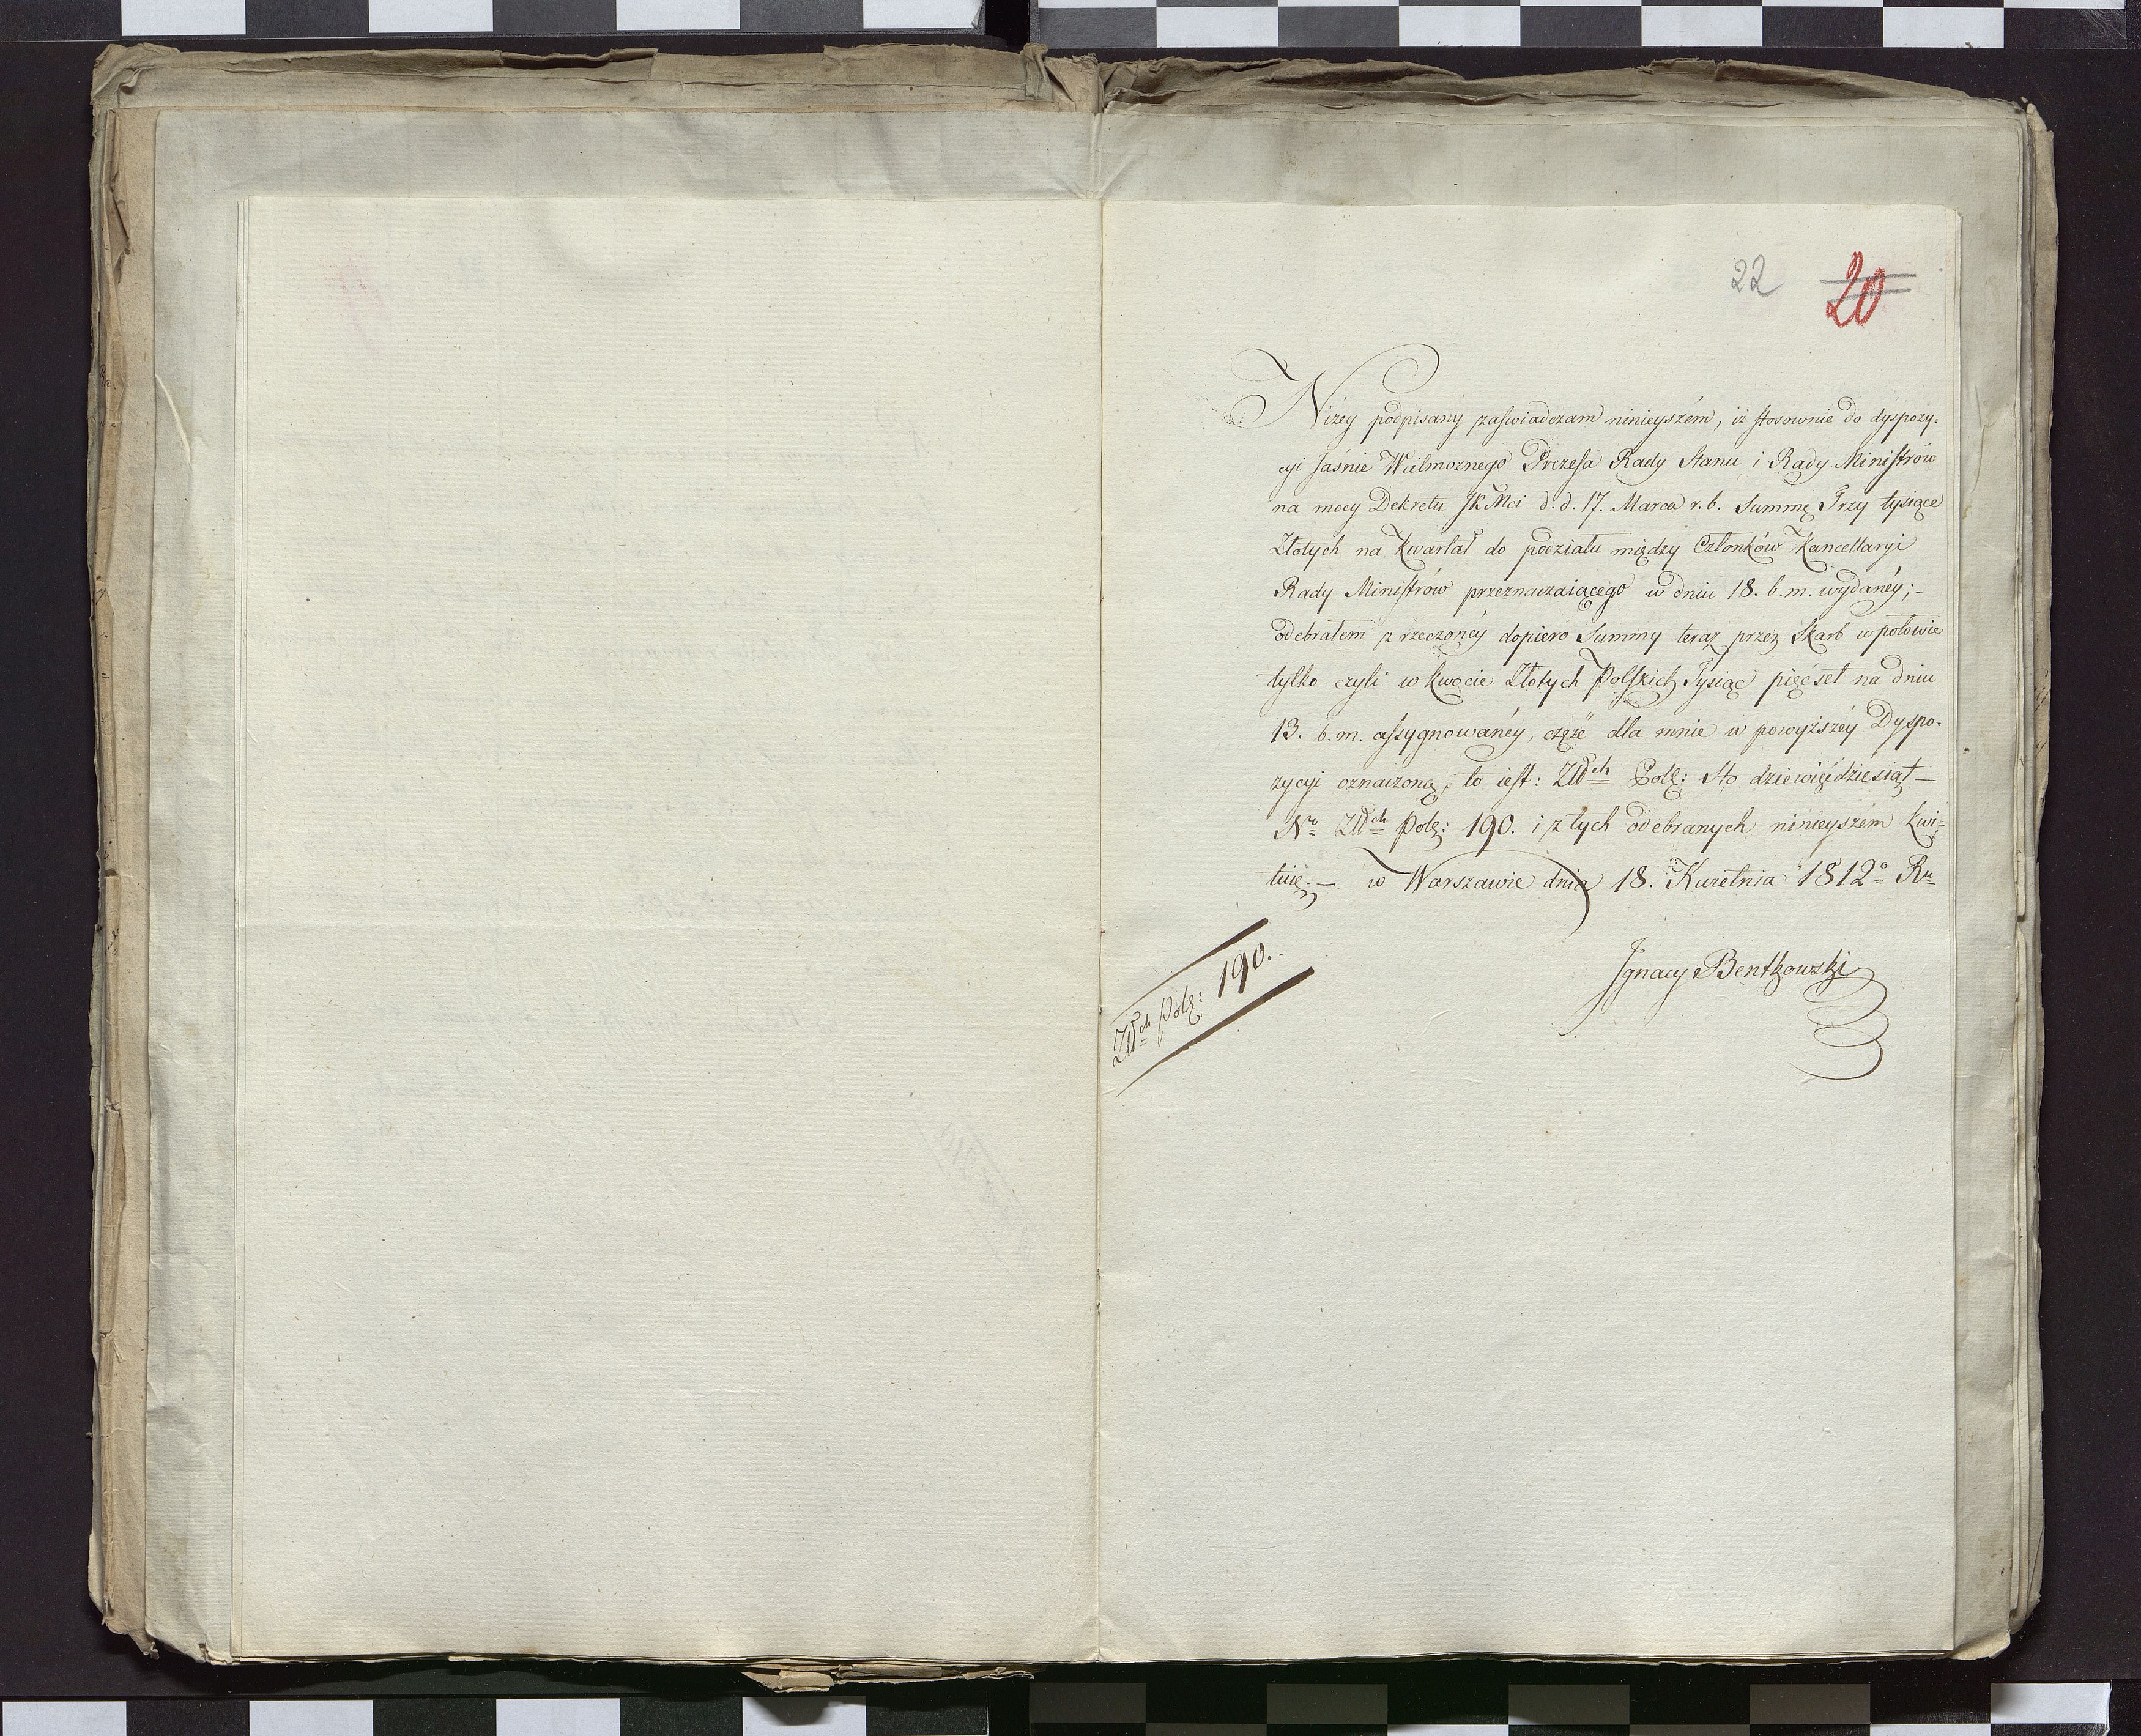 22 20
Niżey podpisany zaswiadczam ninieyszém, iż stosownie do dyspozy-
cyi Jaśnie Wielmoznego Prezesa Rady Stanu i Rady Ministrów
na mocy Dekretu JKMci d. d. 17. Marca r. b. Summę Trzy tysiące
Złotych na Kwartał do podziału między Członków Kancellaryi
Rady Ministrów przeznaczaiącego w dniu 18. b. m. wydanéy; -
odebrałem z rzeczonéy dopiero Summy teraz przez Skarb w połowie
tylko czyli w kwocie Złotych Polskich Tysiąc pięćset na dniu
13. b. m. assygnowanéy, część dla mnie w powyższéy Dyspo-
zycyi oznaczoną, to iest: Złłch Pols: Sto dziewięćdziesiąt —
No Złłch Pols: 190. i z tych odebranych ninieyszém kwi-
tuię. — w Warszawie dnia 18. Kwietnia 1812o Ru
Ignacy Bentkowski
Złłch Pols: 190.